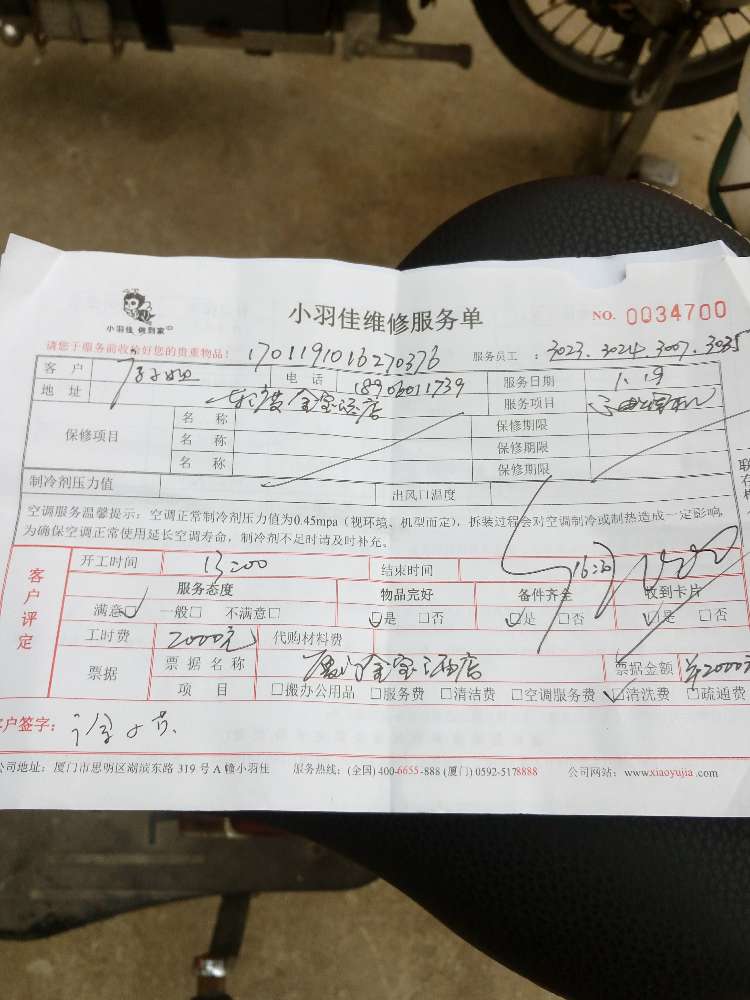 小羽佳 做到家
小羽佳维修服务单
NO. 0034700
请您于服务前收拾好您的贵重物品！ 1701191016270376 服务员工： 3023.3024.3007.3035
客户 电话 18906011739 服务日期 1.19
地址 金宝酒店 服务项目
保修项目 名称 保修期限
名称 保修期限
名称 保修期限
制冷剂压力值 出风口温度
空调服务温馨提示：空调正常制冷剂压力值为0.45mpa（视环境、机型而定），拆装过程会对空调制冷或制热造成一定影响，
为确保空调正常使用延长空调寿命，制冷剂不足时请及时补充。
客户评定
开工时间 13:00 结束时间
服务态度 物品完好 备件齐全 收到卡片
满意□ 一般□ 不满意□ □是 □否 □是 □否 □是 □否
工时费 2000元 代购材料费
票据 票据名称 厦门金宝酒店 票据金额 ¥2000元
项目 □搬办公用品 □服务费 □清洁费 □空调服务费 □清洗费 □疏通费
客户签字：
公司地址：厦门市思明区湖滨东路 319 号 A 幢小羽佳 服务热线：(全国) 400-6655-888 (厦门) 0592-5178888 公司网站：www.xiaoyujia.com